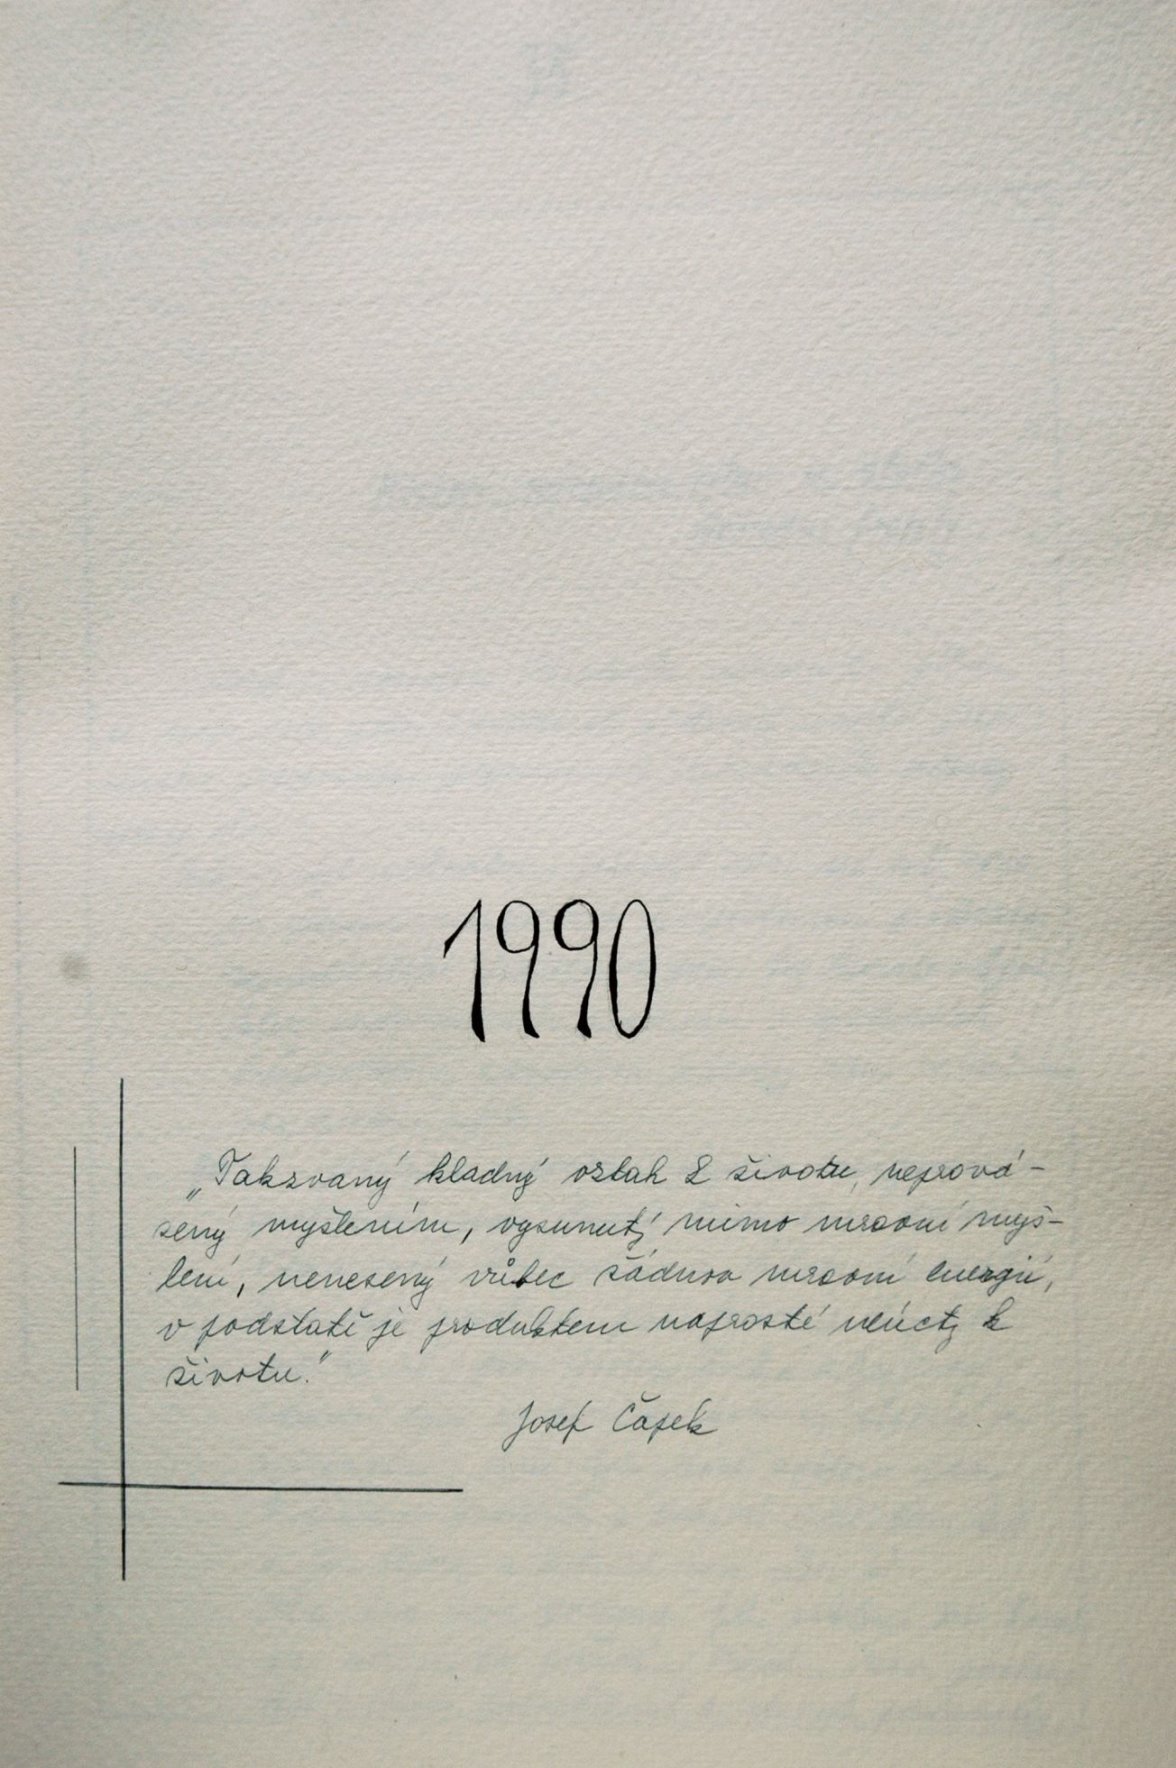 1990
„Takzvaný kladný vztah k životu, neprová-
zený myšlením, vysunutý mimo mravní myš-
lení, nenesený vůbec žádnou mravní energií,
v podstatě je produktem naprosté neúcty k
životu.“
Josef Čapek